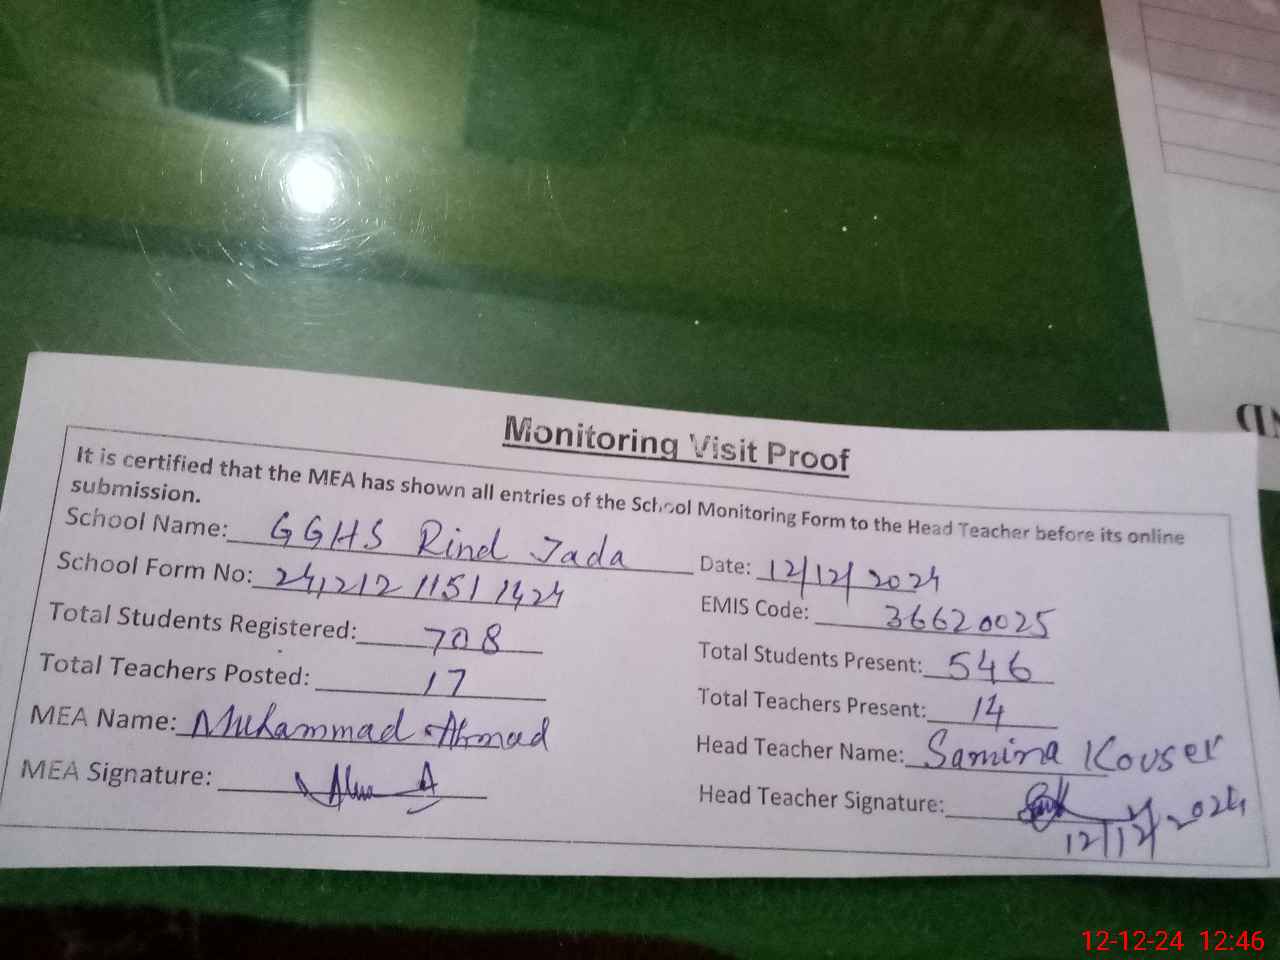 Monitoring Visit Proof
It is certified that the MEA has shown all entries of the School Monitoring Form to the Head Teacher before its online
submission.
School Name: GGHS Rind Jada
Date: 12/12/2024
School Form No:
EMIS Code: 36620025
Total Students Registered: 708
Total Students Present: 546
Total Teachers Posted: 17
Total Teachers Present: 14
MEA Name: Muhammad Ahmad
Head Teacher Name: Samina Kouser
MEA Signature:
Head Teacher Signature:
12/12/2024
12-12-24 12:46